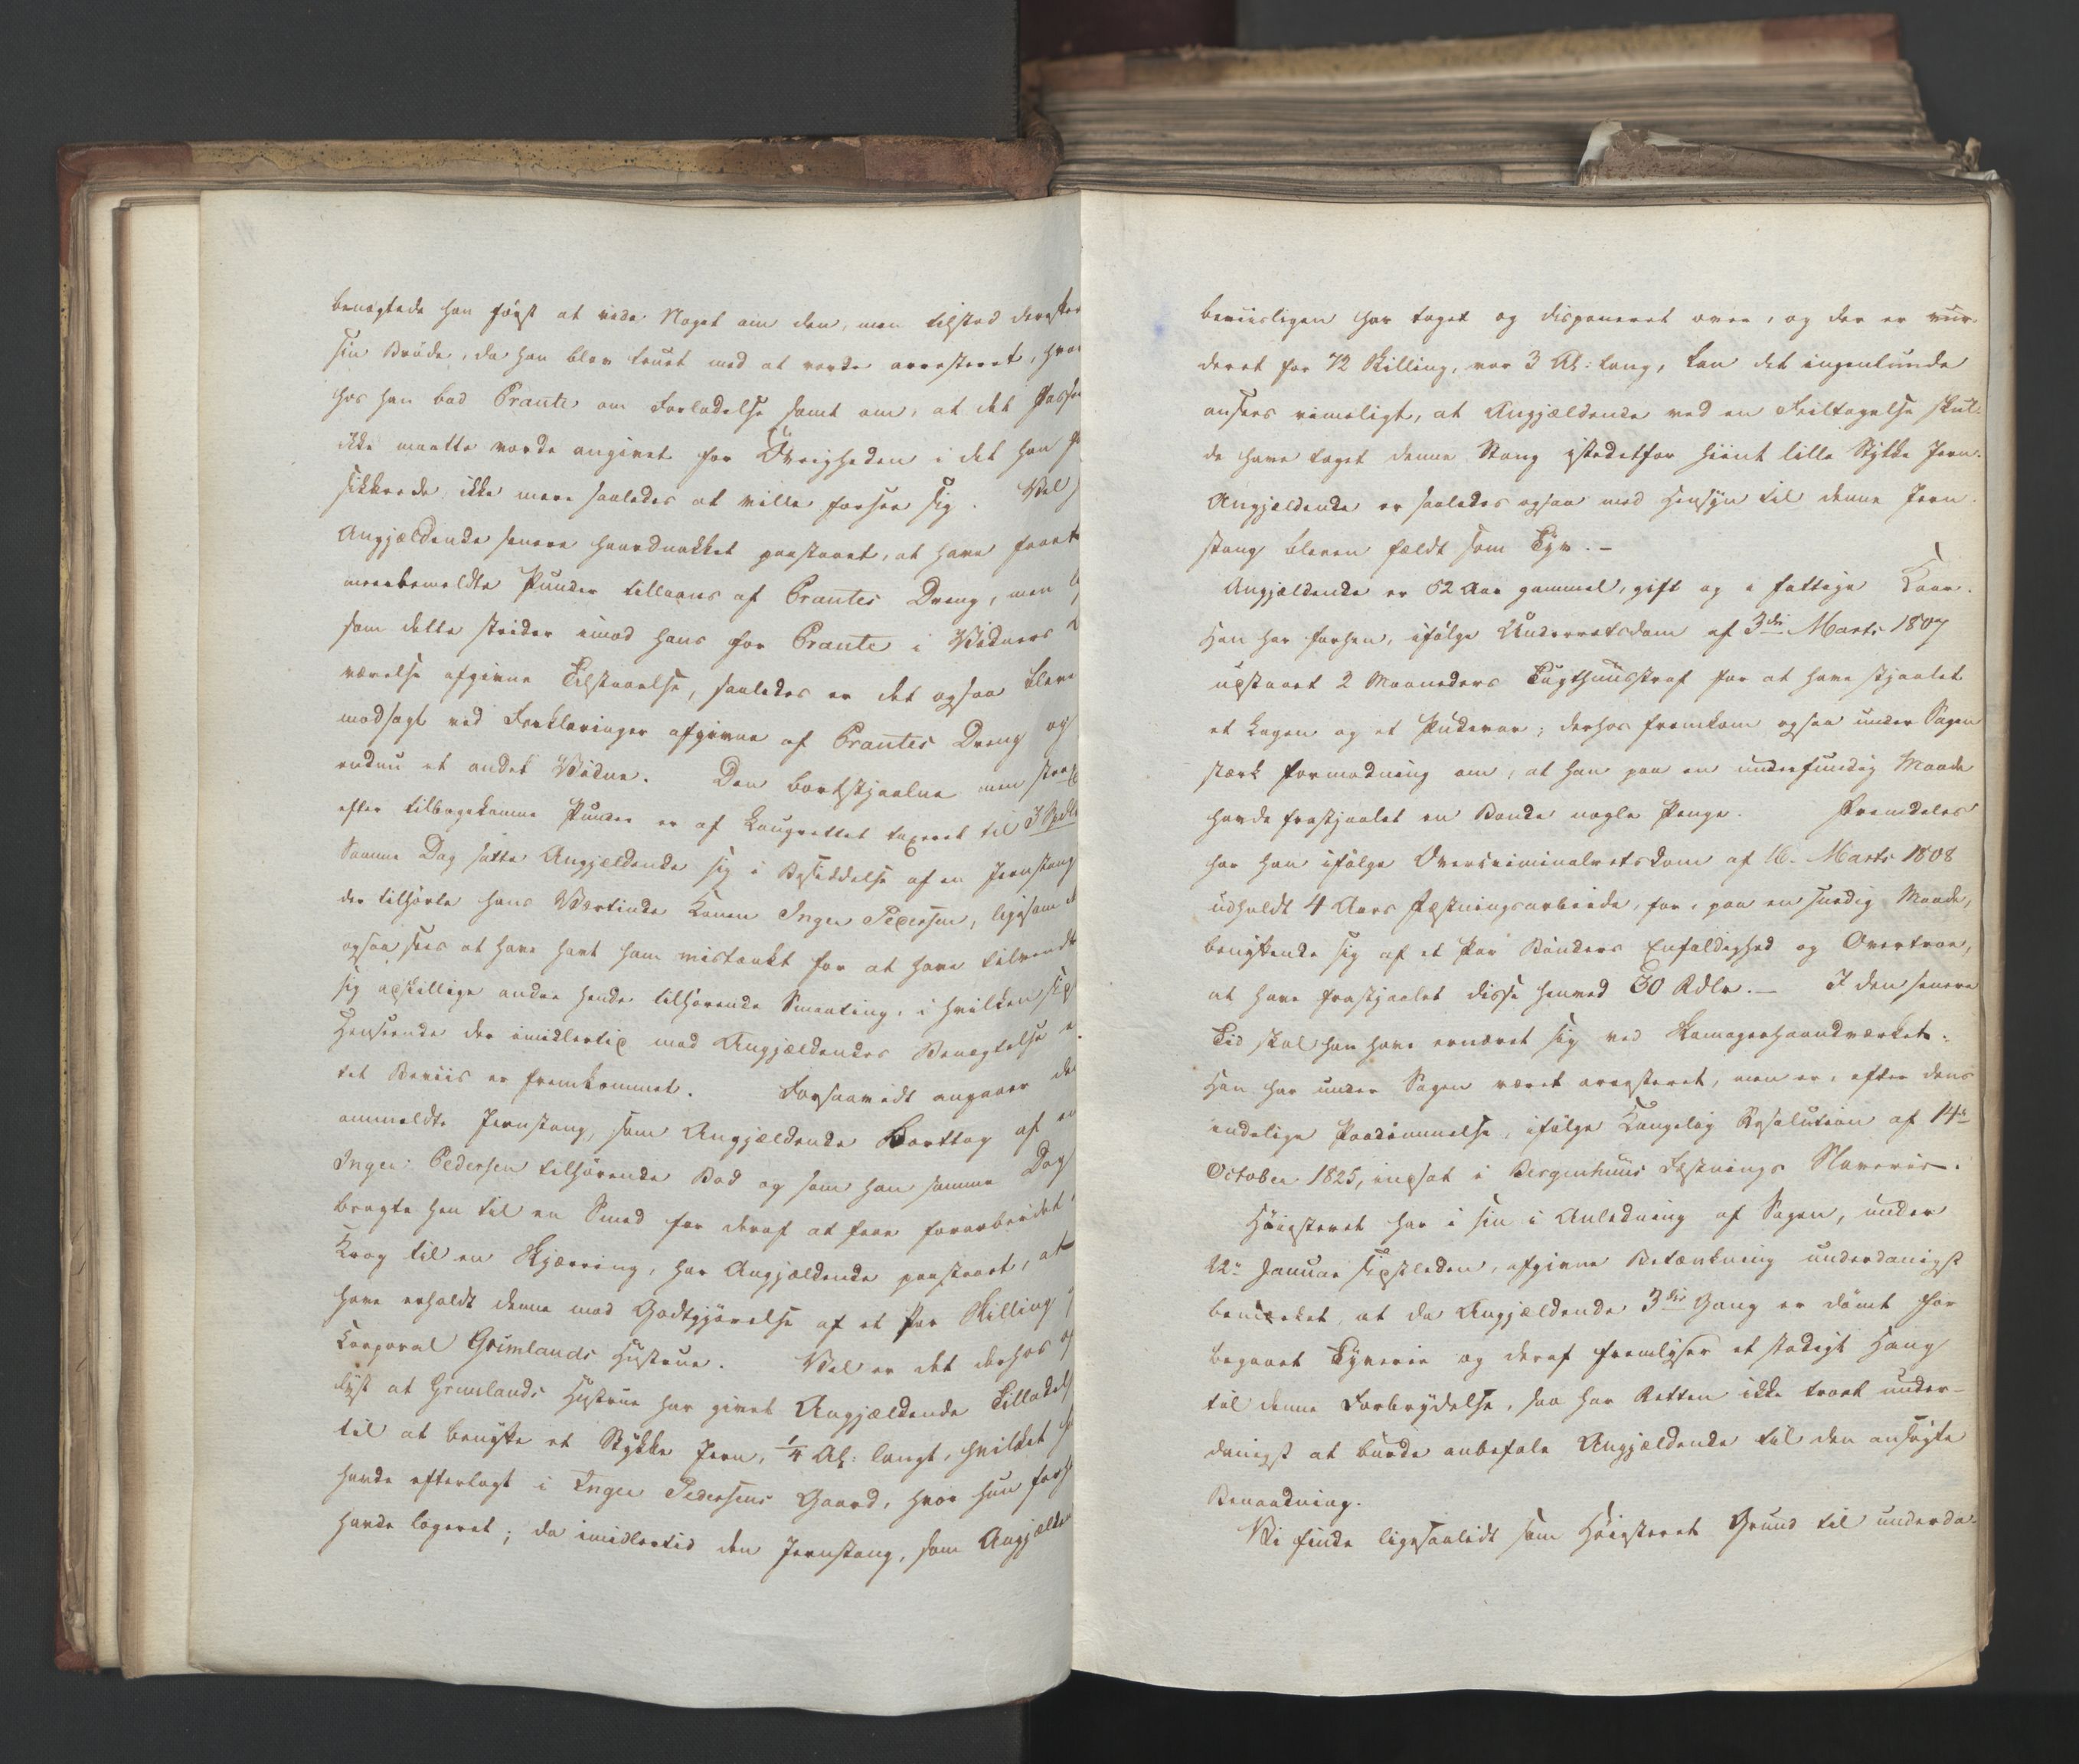 benægtede han først at vide Noget om den, men tilstod derefter
sin Brøde, da han blev truet med at vorde arresteret, hvor
hos han bad Prante om Forladelse samt om, at det Passe
ikke maatte vorde angivet for Øvrigheden i det han
sikkrede ikke mere saaledes at ville forsee sig. Vel
Angjældende senere haardnakket paastaaet, at have faaet
meerbemeldte Punder tillaans af Prantes Dreng, men
som dette strider imod hans for Prante i Vidners
værelse afgivne Tilstaaelse, saaledes er det ogsaa bleve
modsagt ved Forklaringer afgivne af Prantes Dreng og
endnu et andet Vidne. Den bortstjaalne men strax
efter tilbagekomne Punder er af Laugrettet taxeret til
Samme Dag satte Angjældende sig i Besiddelse af en Jernstang
der tilhørte hans Værtinde Konen Inger Pedersen, ligesom
ogsaa sees at have havt ham mistænkt for at have tilvendt
sig adskillige andre hende tilhørende Smaating, i hvilken
Henseende der imidlertid mod Angjældendes Benægtelse
tet Beviis er fremkommet. Forsaavidt angaaer
ommeldte Jernstang, som Angjældende borttog af en
Inger Pedersen tilhørende Bod og som han samme Dag
bragte hen til en Smed for deraf at faae forarbeidet
Krog til en Kjærring, har Angjældende paastaaet, at
have erholdt denne mod Godtgjørelse af et Par Skilling
Korporal Grimlands Hustrue. Vel er det derhos
lyst at Grimlands Hustrue har givet Angjældende Tilladelse
til at benytte et Stykke Jern, 1/4 Al: langt, hvilket
havde efterlagt i Inger Pedersens Gaard, hvor hun
havde logeret; da imidlertid den Jernstang, som Angjælden
beviisligen har taget og disponeret over, og der er vur-
deret for 72 Skilling, var 3 Al: lang, kan det ingenlunde
ansees rimeligt, at Angjældende ved en Feiltagelse skul-
de have taget denne Stang istedetfor hiint lille Stykke Jern.
Angjældende er saaledes ogsaa med Hensyn til denne Jern-
stang bleven fældt som Tyv. –
Angjældende er 52 Aar gammel, gift og i fattige Kaar.
Han har forhen, ifølge Underretsdom af 3die Marts 1807
udstaaet 2 Maaneders Tugthuusstraf for at have stjaalet
et Lagen og et Pudevar; derhos fremkom ogsaa under Sagen
stærk Formodning om, at han paa en underfundig Maade
havde frastjaalet en Bonde nogle Penge. Fremdeles
har han ifølge Overcriminalretsdom af 16. Marts 1808
udholdt 4 Aars Fæstningsarbeide, for, paa en snedig Maade,
benyttende sig af et Par Bønders Enfoldighed og Overtroe,
at have frastjaalet disse henved 30 Rdlr. – I den senere
Tid skal han have ernæret sig ved Skomagerhaandværket.
Han har under Sagen været arresteret, men er, efter dens
endelige Paadømmelse, ifølge Kongelig Resolution af 14de
October 1825, indsat i Bergenhuus Fæstnings Slaverie.
Høiesteret har i sin i Anledning af Sagen, under
22de Januar sidstleden, afgivne Betænkning underdanigst
bemærket, at da Angjældende 3die Gang er dømt for
begaaet Tyverie og deraf fremlyser et stadigt Hang
til denne Forbrydelse, saa har Retten ikke troet under-
danigst at burde anbefale Angjældende til den ansøgte
Benaadning.
Vi finde ligesaalidt som Høiesteret Grund til underda-